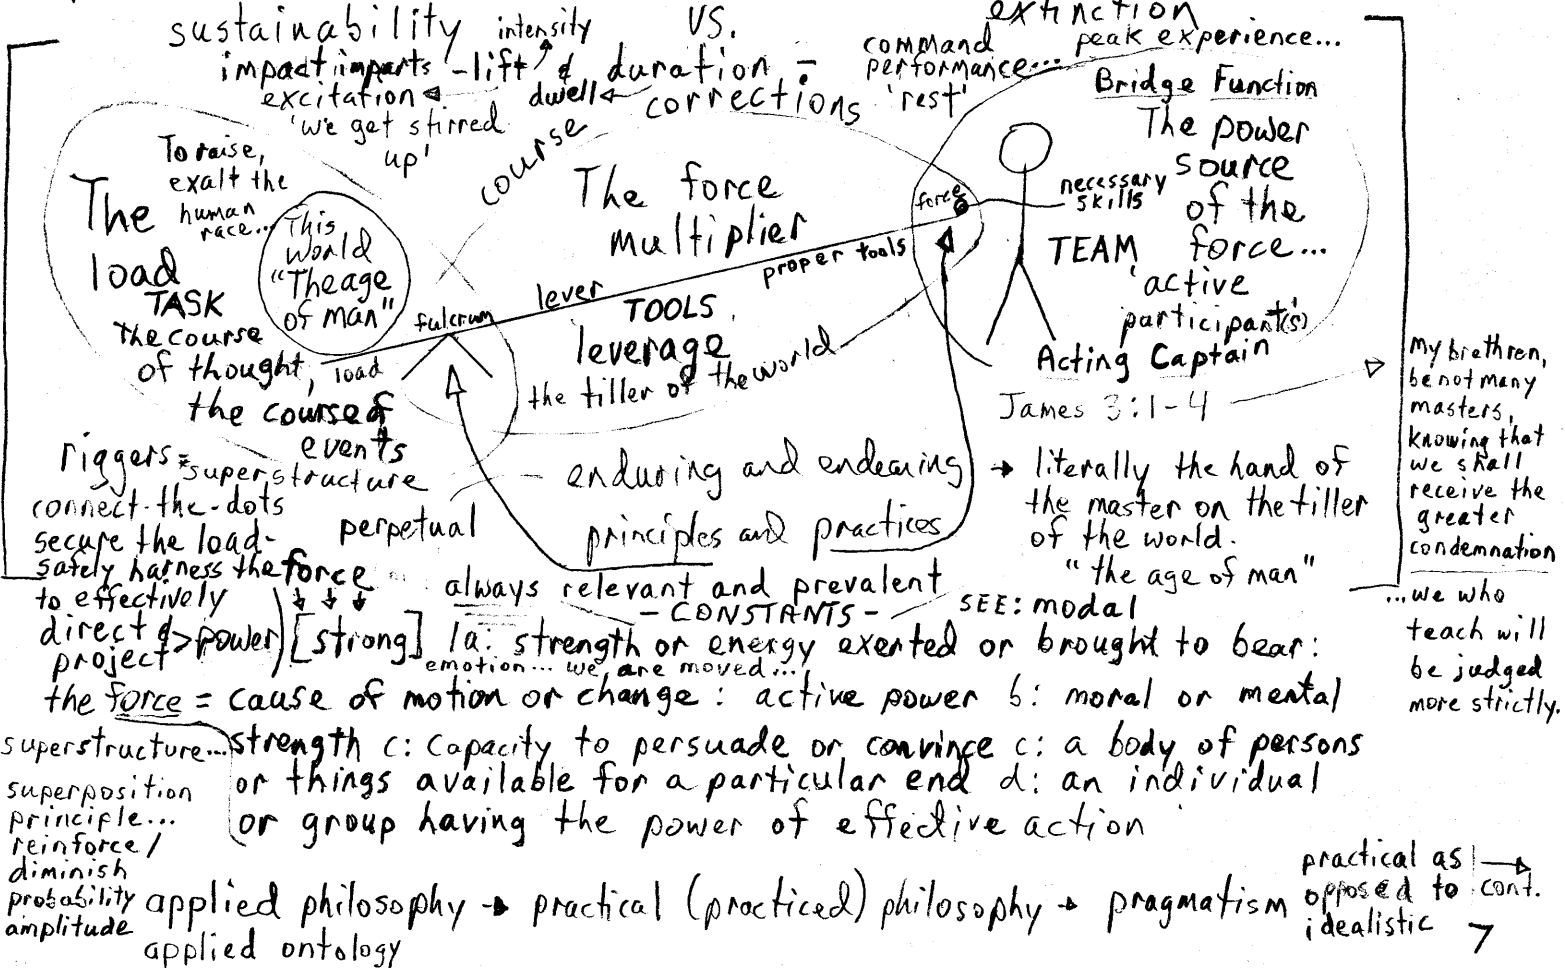 sustainability vs. extinction
intensity
peak experience...
impact imparts - lift & duration -
command
performance...
'rest'
excitation
dwell
corrections
course
'we get stirred
up'
Bridge Function
The power
source
of the
force...
'active
participant(s)'
To raise,
exalt the
human
race...
The
load
TASK
the course
of thought,
the course of
events
This
world
"The age
of man"
load
fulcrum
lever
The force
multiplier
TOOLS
leverage
the tiller of the world
proper tools
force
necessary
skills
TEAM
Acting Captain
James 3:1-4
My brethren,
be not many
masters,
knowing that
we shall
receive the
greater
condemnation
...we who
teach will
be judged
more strictly.
riggers =
superstructure
connect-the-dots
secure the load-
safely harness the force
to effectively
direct &
project > power
perpetual
- enduring and endearing
principles and practices
→ literally the hand of
the master on the tiller
of the world.
"the age of man"
always relevant and prevalent
- CONSTANTS -
SEE: modal
[strong] 1a: strength or energy exerted or brought to bear:
emotion... we are moved...
the force = cause of motion or change : active power b: moral or mental
strength c: capacity to persuade or convince c: a body of persons
or things available for a particular end d: an individual
or group having the power of effective action
superstructure...
superposition
principle...
reinforce/
diminish
probability
amplitude
applied philosophy → practical (practiced) philosophy → pragmatism
practical as
opposed to
idealistic
cont.
applied ontology
7